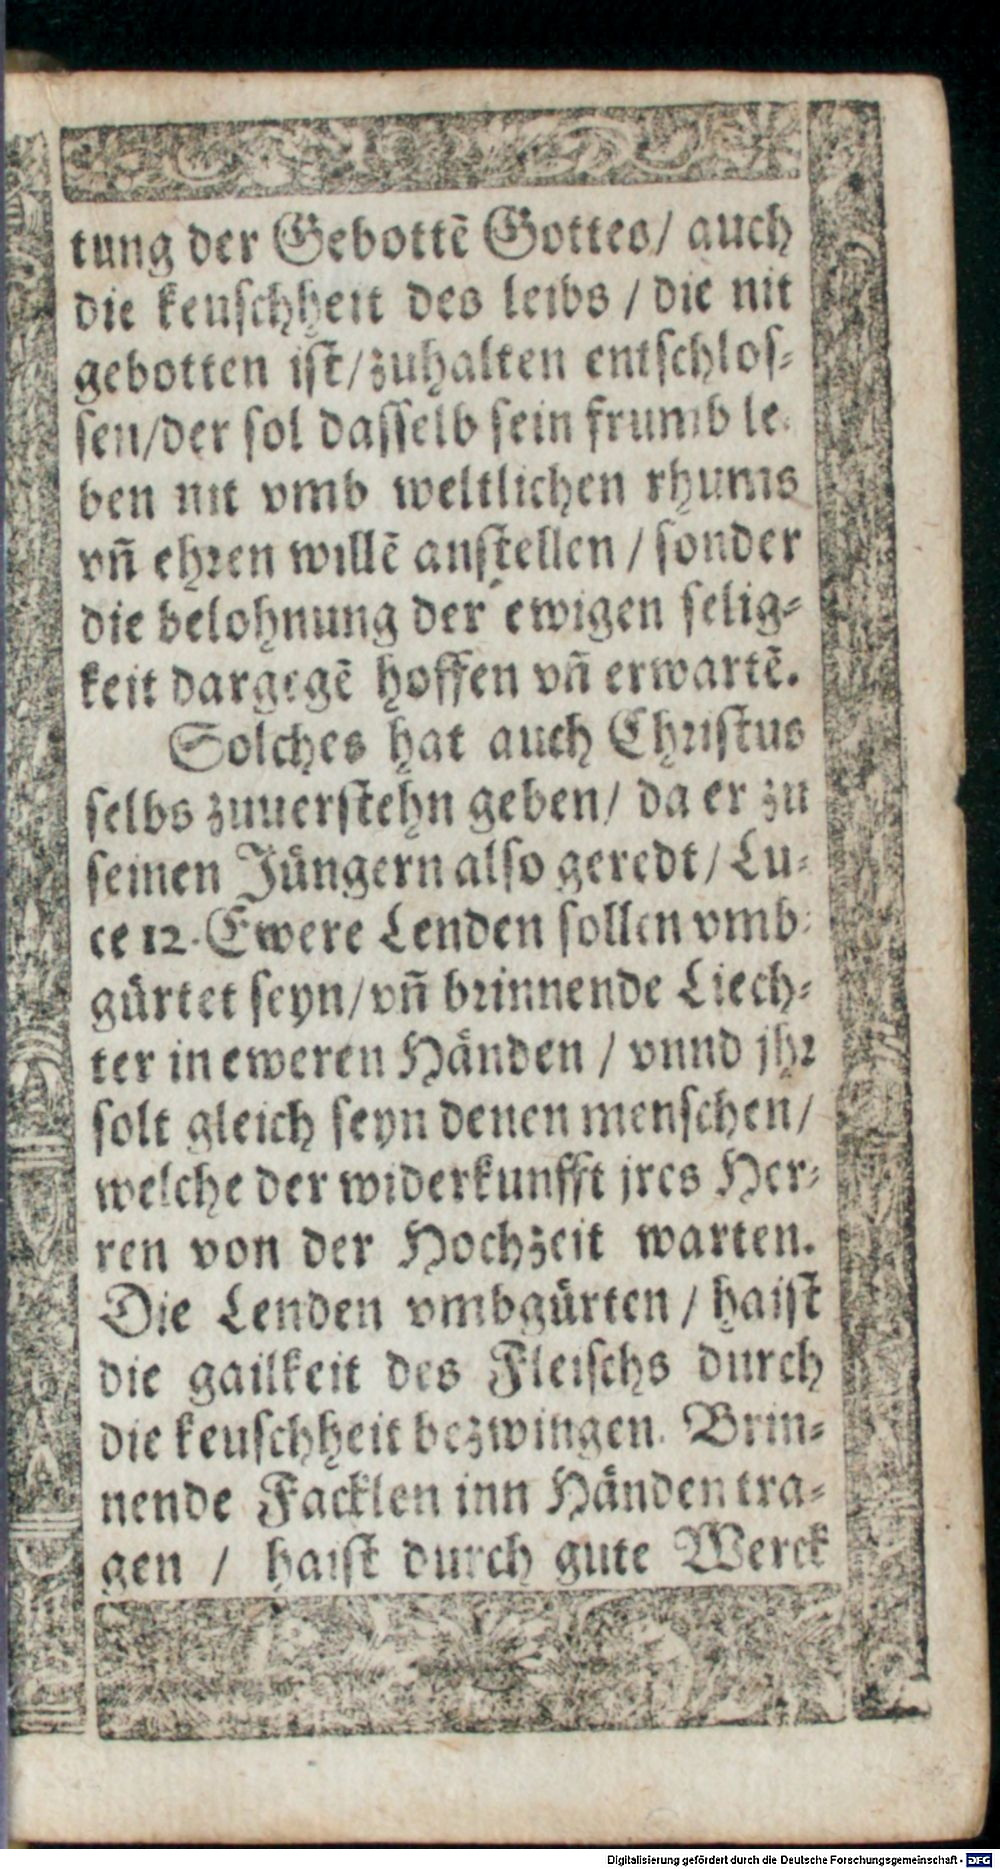 tung der Gebottē Gottes/ auch
die keuschheit des leibs / die nit
gebotten ist/zuhalten entschlos-
sen/der sol dasselb sein frumb le-
ben nit vmb weltlichen rhums
vñ ehren willē anstellen / sonder
die belohnung der ewigen selig-
keit dargegē hoffen vñ erwartē.
Solches hat auch Christus
selbs zuuerstehn geben/ da er zu
seinen Jüngern also geredt/ Lu-
ce 12. Ewere Lenden sollen vmb-
gürtet seyn/vñ brinnende Liech-
ter in eweren Händen / vnnd jhr
solt gleich seyn denen menschen/
welche der widerkunfft jres Her-
ren von der Hochzeit warten.
Die Lenden vmbgürten / haist
die gailkeit des Fleischs durch
die keuschheit bezwingen. Brin-
nende Facklen inn Händen tra-
gen / haist durch gute Werck
Digitalisierung gefördert durch die Deutsche Forschungsgemeinschaft - DFG